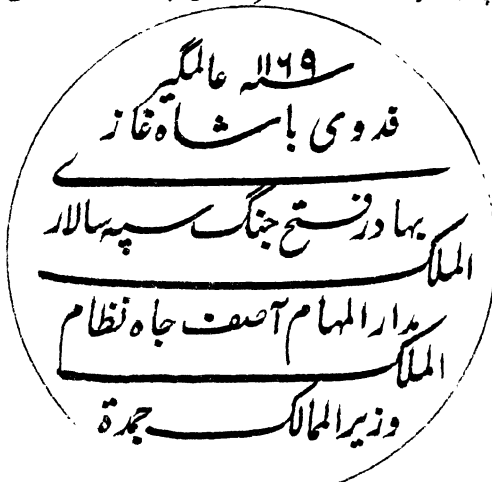 ۱۱۶۹ سنہ عالمگیر
فدوی بادشاہ غاز
ے
بہادر فتح جنگ سپہ سالار
الملک
مدار المہام آصف جاہ نظام
الملک
وزیر الممالک جمدۃ